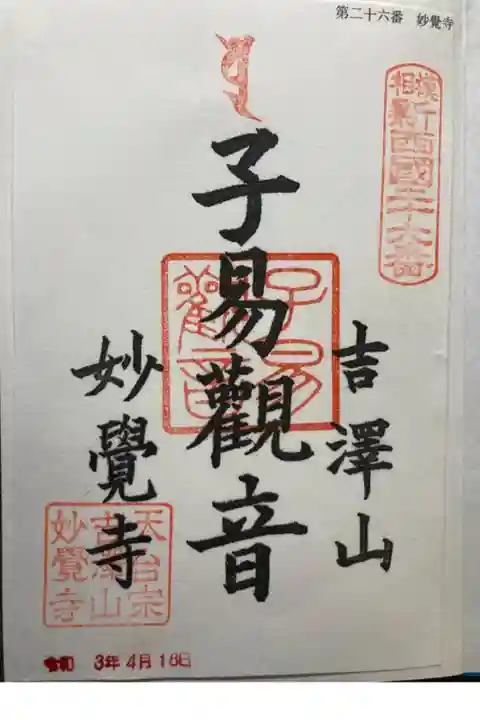 第二十六番 妙覺寺
相模
新西國二十六番
吉澤山
子易觀音
子易
觀音
妙覺寺
天台宗
吉澤山
妙覺寺
令和 3年4月16日